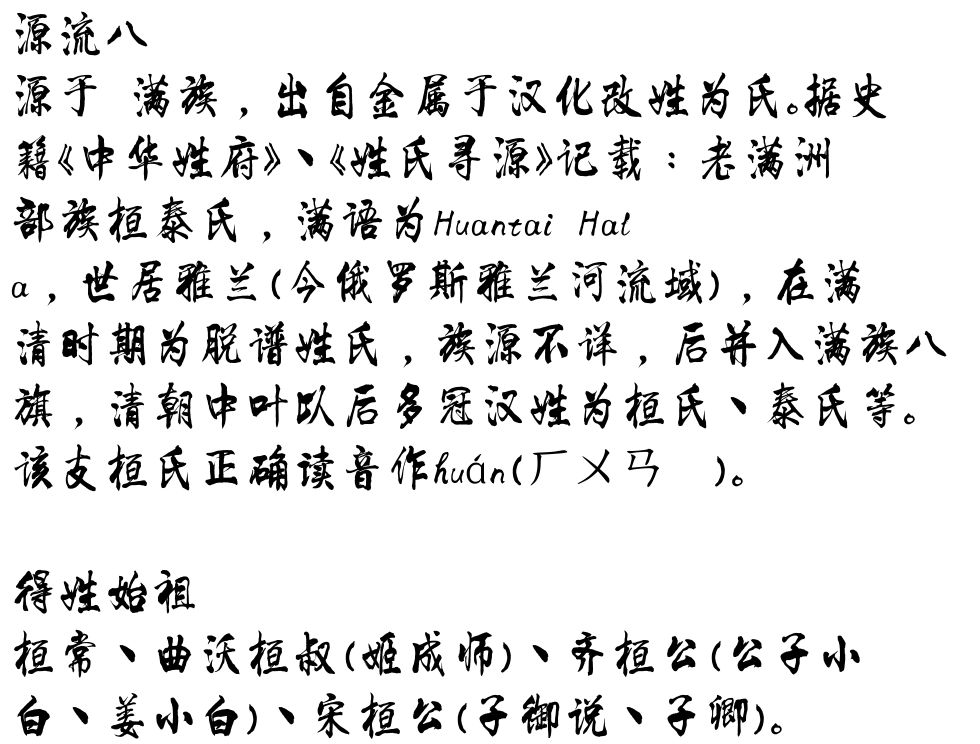 源流八
源于 满族，出自金属于汉化改姓为氏。据史
籍《中华姓府》、《姓氏寻源》记载：老满洲
部族桓泰氏，满语为Huantai Hal
a，世居雅兰(今俄罗斯雅兰河流域)，在满
清时期为脱谱姓氏，族源不详，后并入满族八
旗，清朝中叶以后多冠汉姓为桓氏、泰氏等。
该支桓氏正确读音作huán(ㄏㄨㄢ )。
得姓始祖
桓常、曲沃桓叔(姬成师)、齐桓公(公子小
白、姜小白)、宋桓公(子御说、子卿)。